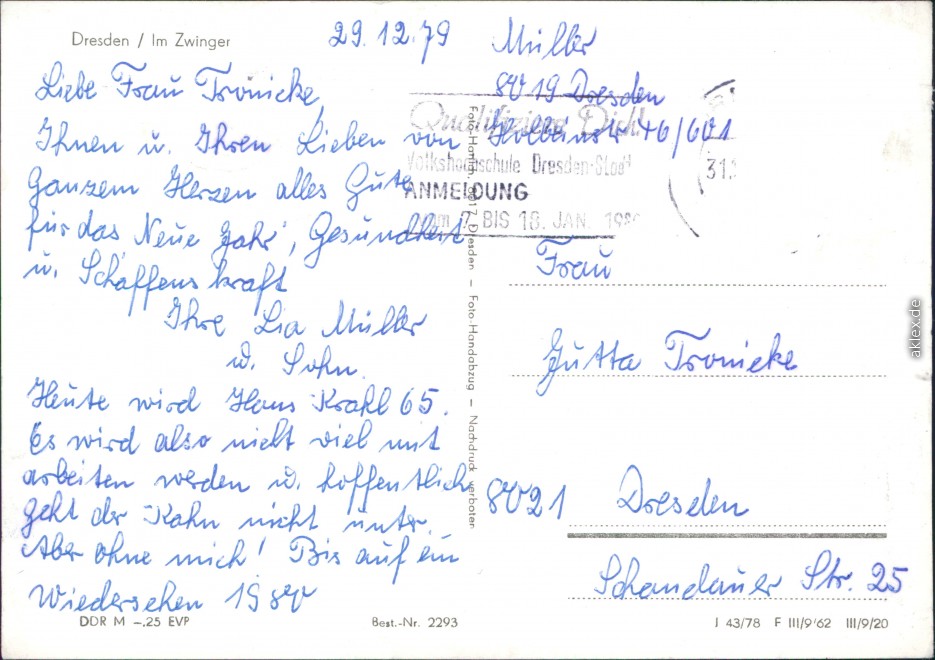 Dresden / Im Zwinger
29.12.79
Liebe Frau Tronicke,
Ihnen u. Ihren Lieben von
ganzem Herzen alles Gute
für das Neue Jahr, Gesundheit
u. Schaffenskraft
Ihre Lia Müller
u. Sohn.
Heute wird Hans Krahl 65.
Es wird also nicht viel mit
arbeiten werden u. hoffentlich
geht der Kahn nicht unter.
Aber ohne mich! Bis auf ein
Wiedersehen 1980
DDR M –,25 EVP
Best.-Nr. 2293
Foto-Handabzug – Nachdruck verboten
Müller
8019 Dresden
46/601
Qualifiziere Dich!
Volkshochschule Dresden-Stadt
ANMELDUNG
vom 7. BIS 18. JAN. 1980
31.
Frau
Jutta Tronicke
8021 Dresden
Schandauer Str. 25
J 43/78 F III/9/62 III/9/20
aklex.de